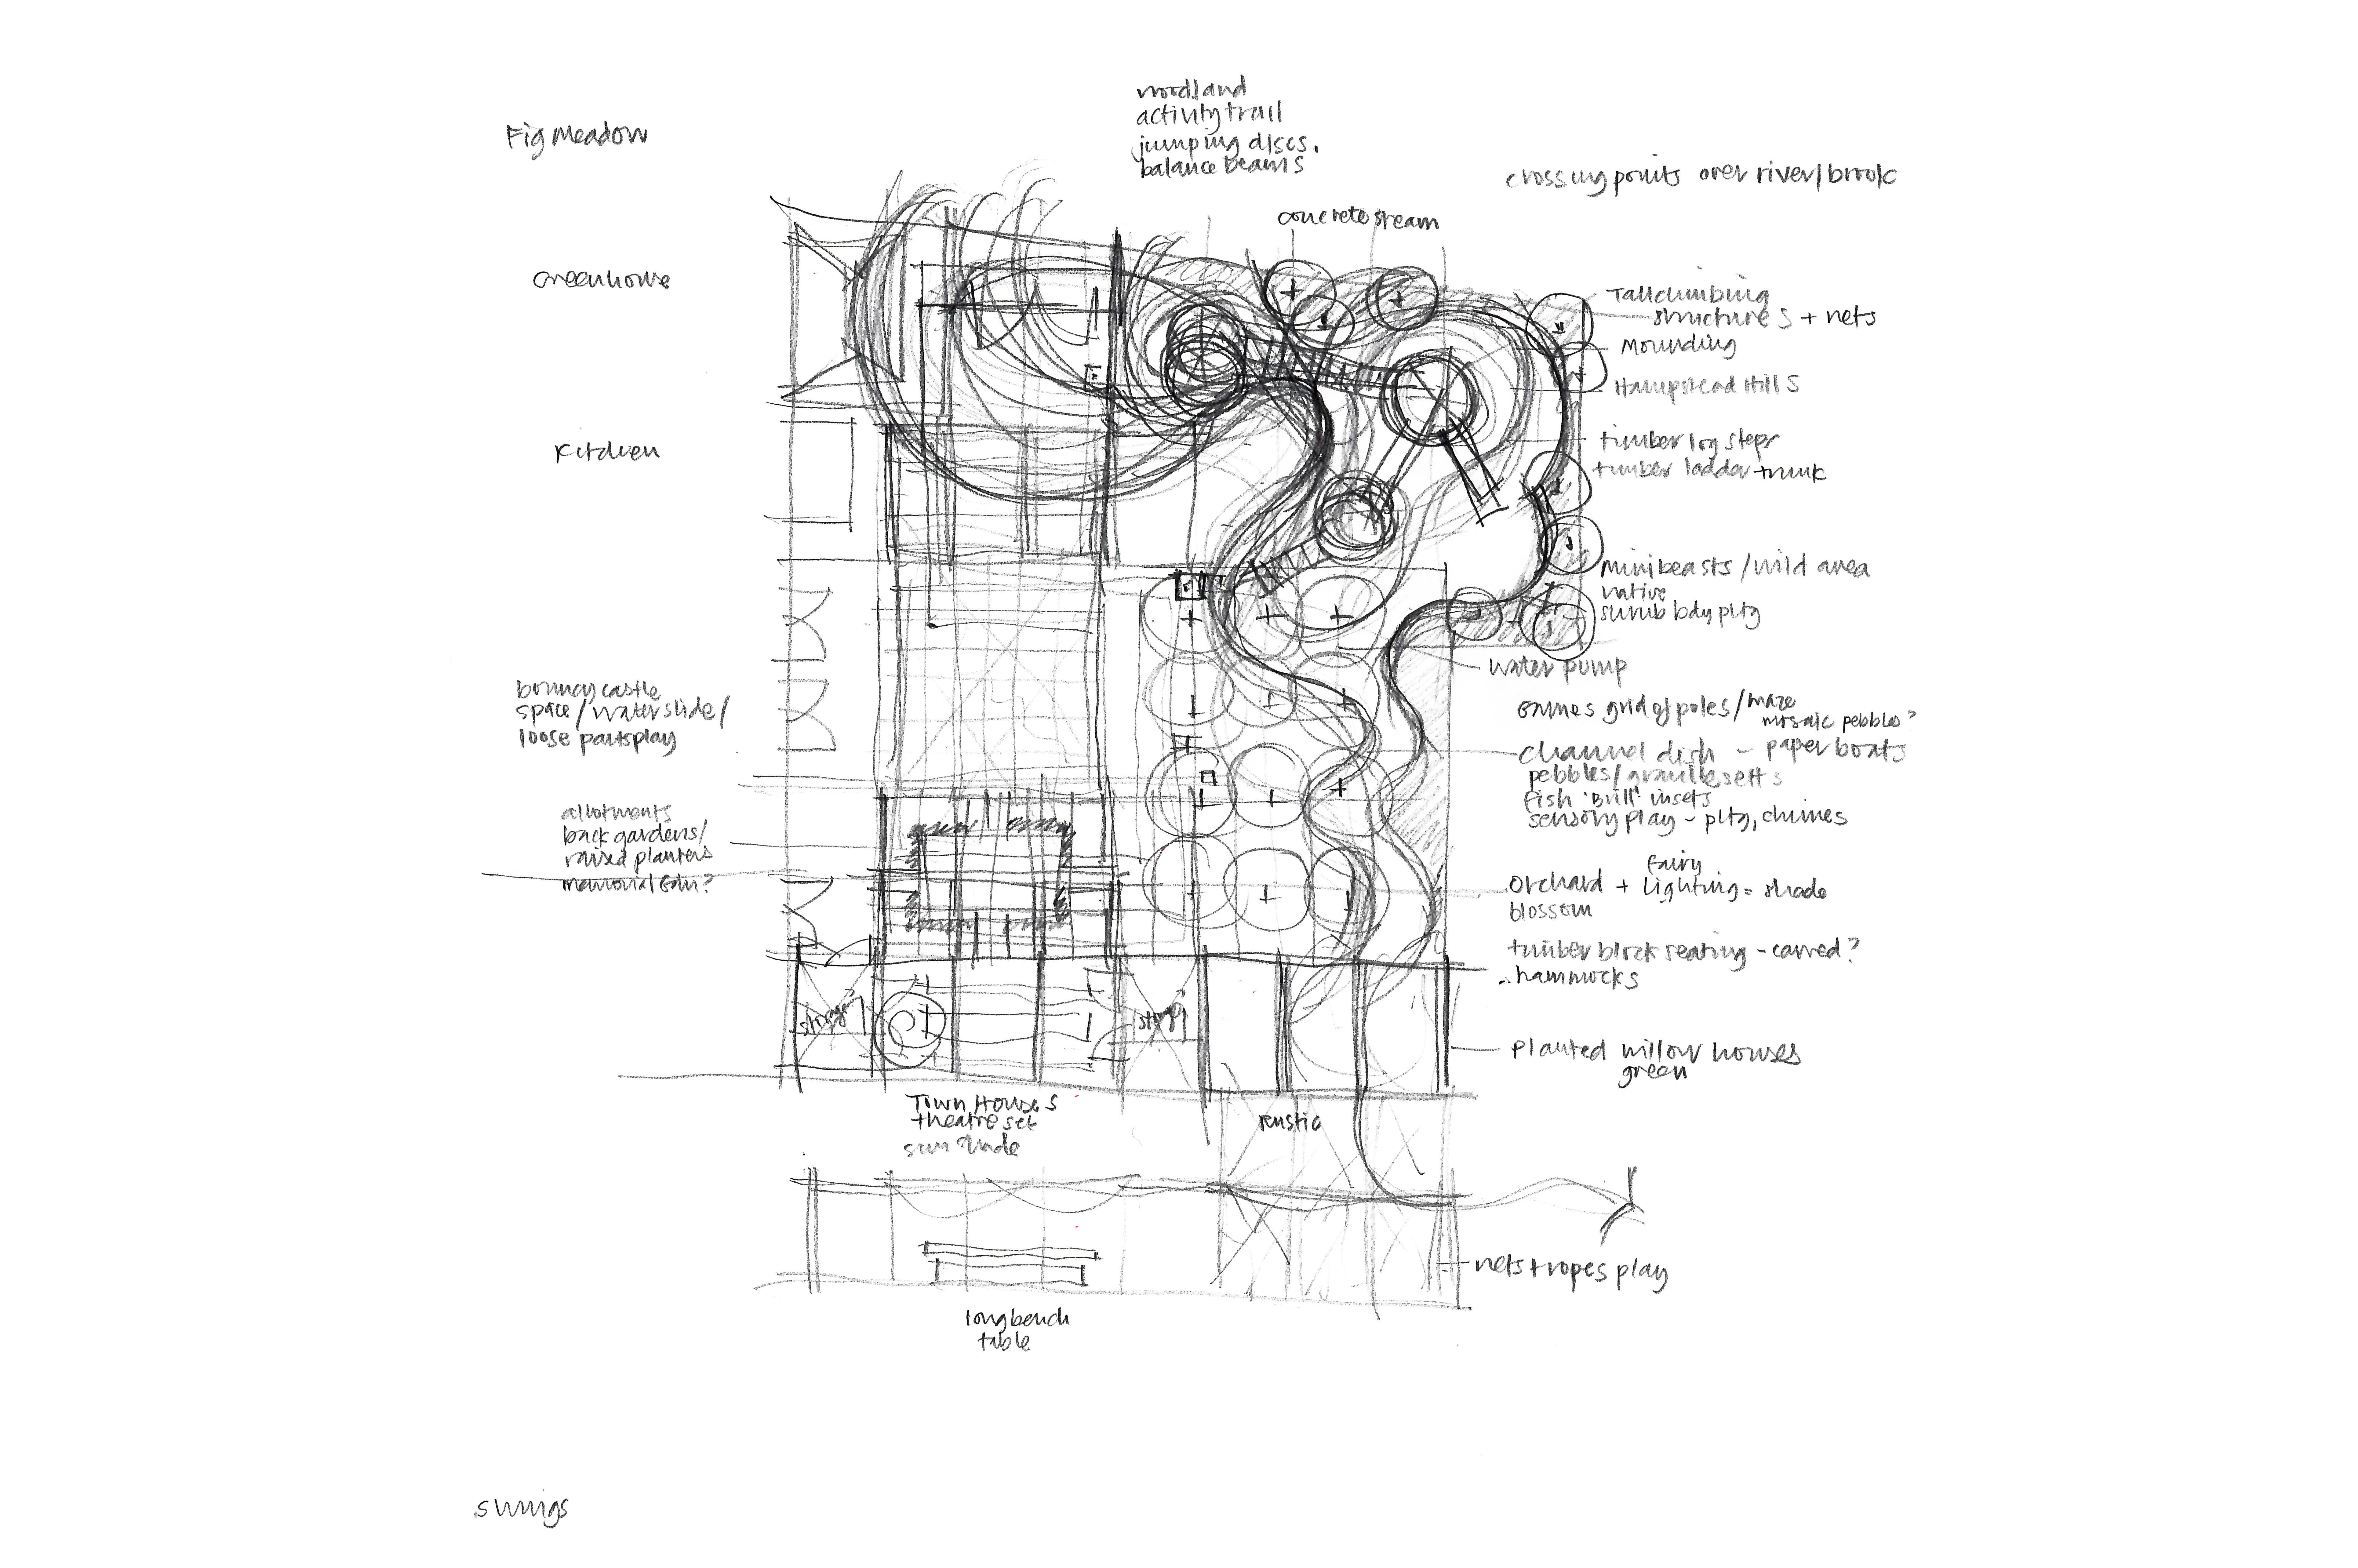 woodland
activity trail
jumping discs.
balance beams
Fig Meadow
crossing points over river/brook
concrete stream
Greenhouse
Tall climbing
structures + nets
Mounding
Hampstead Hills
Kitchen
timber log steps
timber ladder trunk
minibeasts/wild area
native
shrub bdy pltg
water pump
bouncy castle
space/water slide/
loose parts play
Games grid of poles/maze
mosaic pebbles?
channel dish - paper boats
pebbles/granite setts
fish 'Brill' insets
sensory play - pltg, chimes
allotments
back gardens/
raised planters
memorial Gdn?
fairy
orchard + lighting = shade
blossom
timber block seating - carved?
hammocks
storage
storage
Planted willow houses
green
Town Houses
theatre set
sun shade
rustic
nets + ropes play
long bench
table
swings